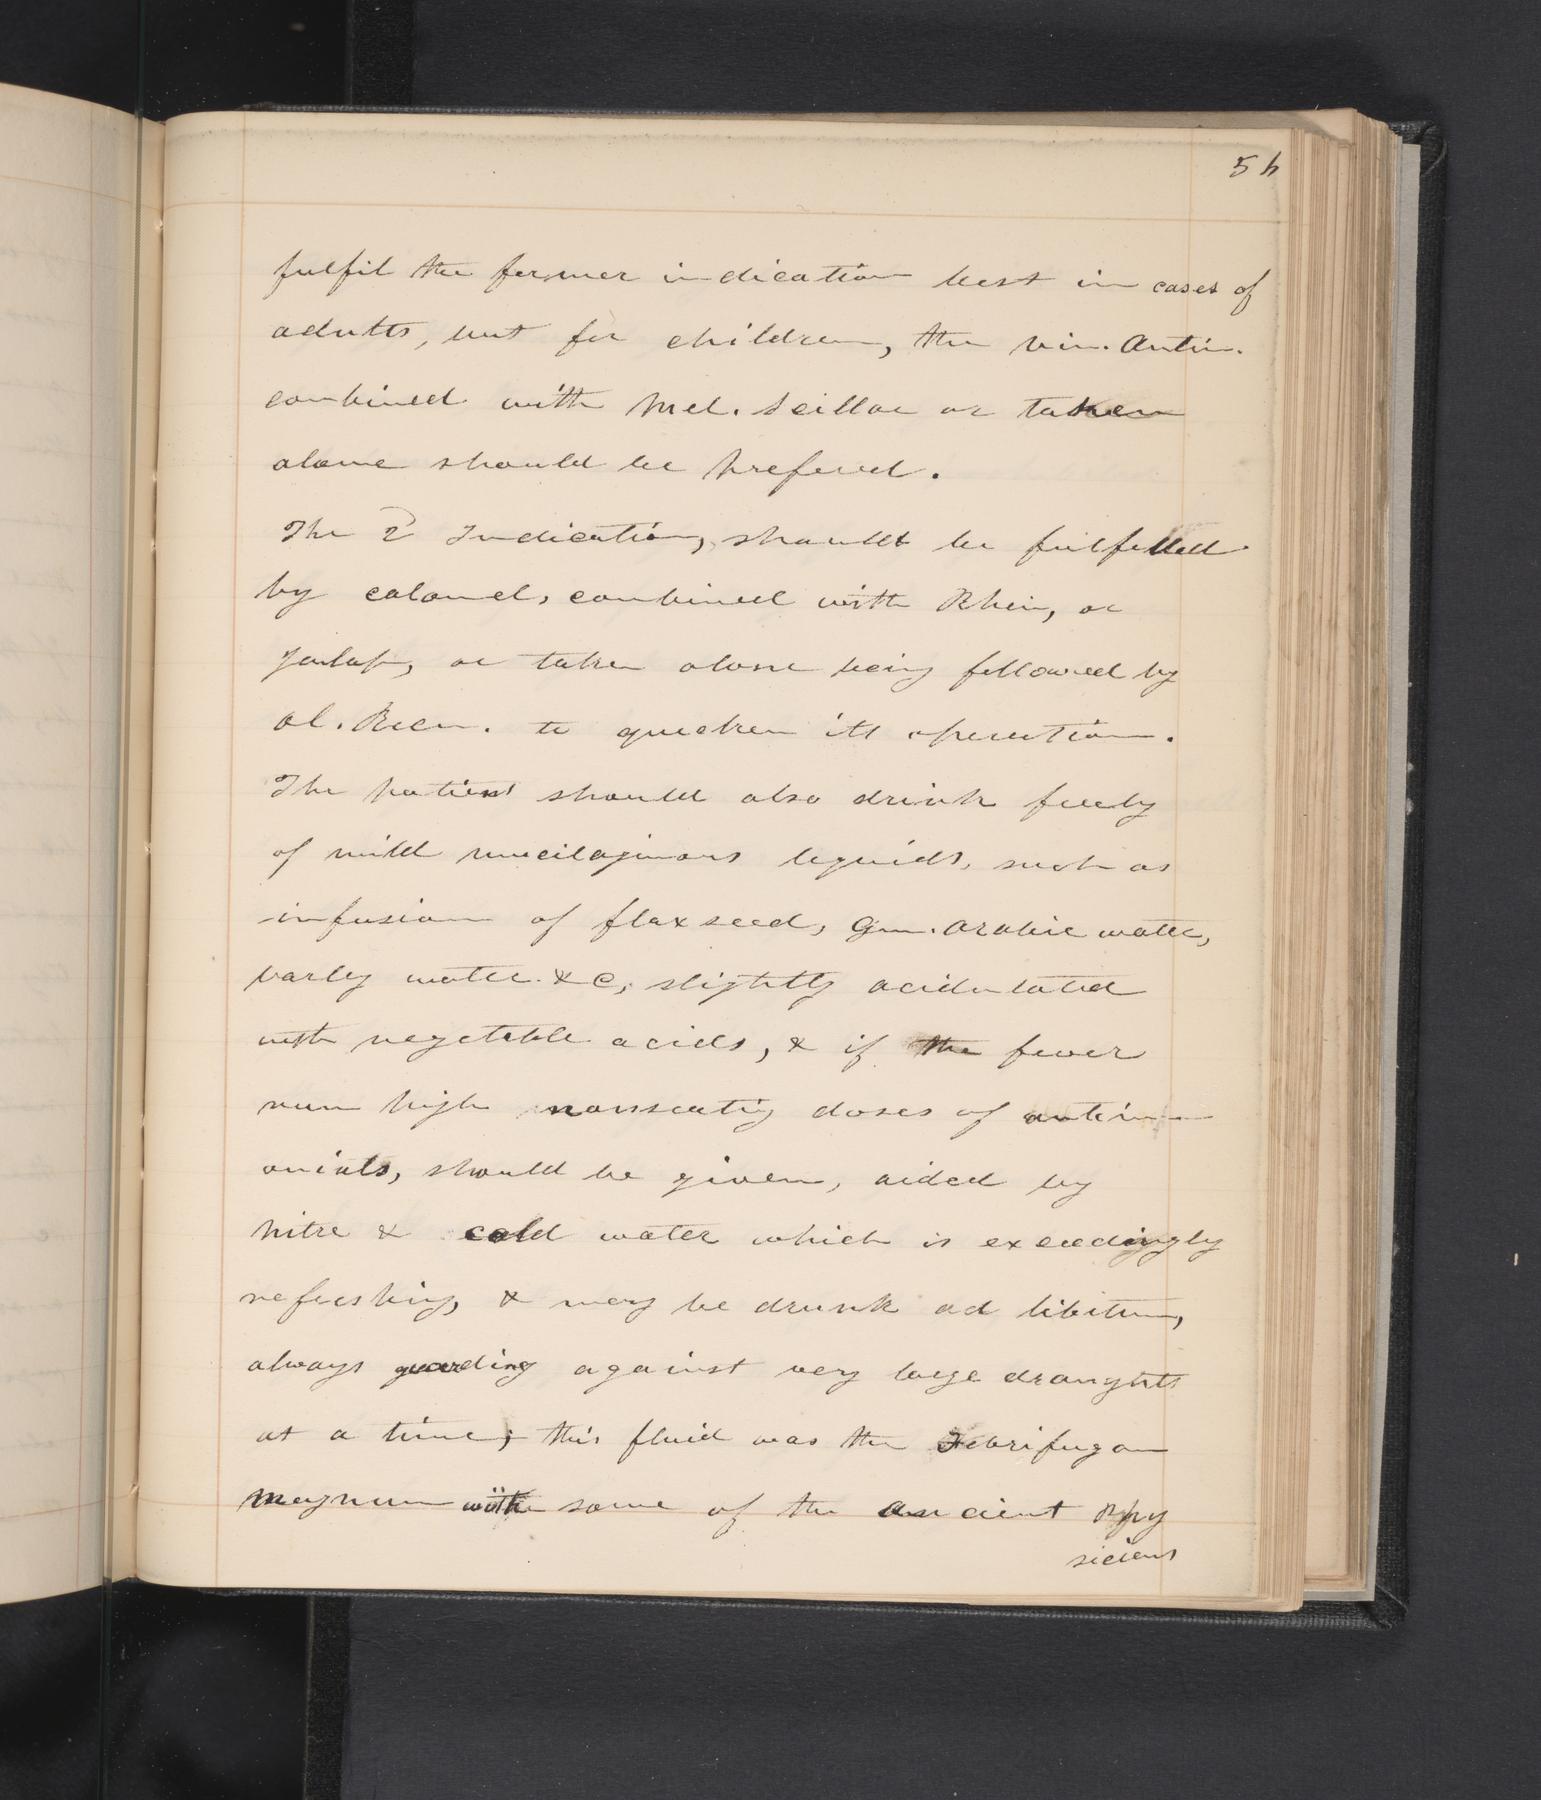 54
fulfil the former indication best in cases of
adults, but for children, the vin. Anti.
combined with Mel. Scillae or taken
alone should be prefered.
The 2 Indication, should be fulfilled
by calomel, combined with Rhei, or
Jalap, or taken alone being followed by
ol. Ricin. to quicken its operation.
The patient should also drink freely
of mild mucilaginous liquids, such as
infusion of flaxseed, Gum. Arabic water,
barley water &c, slightly acidulated
with vegetable acids, & if the fever
run high nauseating doses of antim
onials, should be given, aided by
nitre & cold water which is exceedingly
refreshing, & may be drunk ad libitum,
always guarding against very large draughts
at a time; this fluid was the Febrifugam
magnum with some of the ancient Phy
sicians